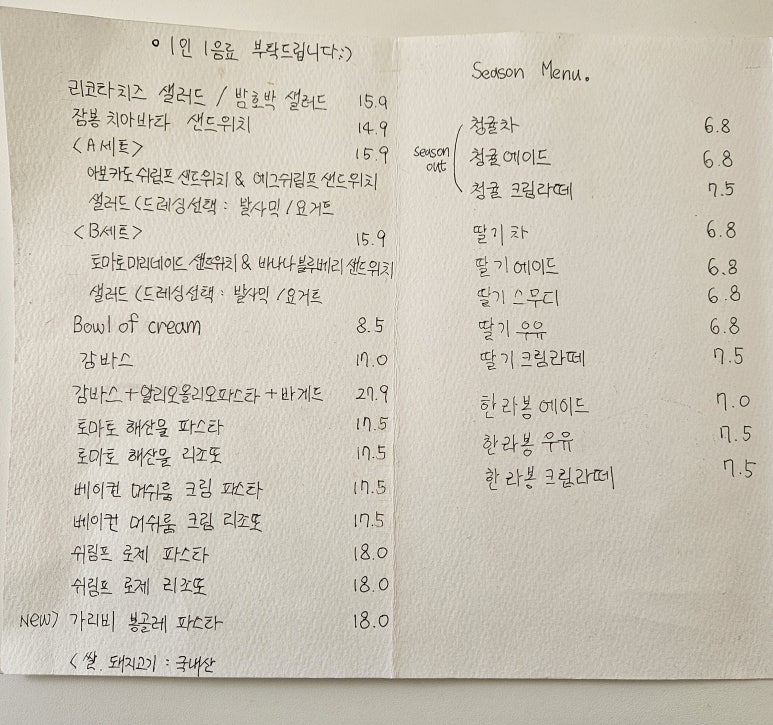 ○ 1인 1음료 부탁드립니다:)
리코타치즈 샐러드 / 밤호박 샐러드 15.9
잠봉 치아바타 샌드위치 14.9
<A세트> 15.9
아보카도 쉬림프 샌드위치 & 에그쉬림프 샌드위치
샐러드 (드레싱선택 : 발사믹 / 요거트
<B세트> 15.9
토마토마리네이드 샌드위치 & 바나나블루베리 샌드위치
샐러드 (드레싱선택 : 발사믹 / 요거트
Bowl of cream 8.5
감바스 17.0
감바스 + 알리오올리오파스타 + 바게트 27.9
토마토 해산물 파스타 17.5
토마토 해산물 리조또 17.5
베이컨 머쉬룸 크림 파스타 17.5
베이컨 머쉬룸 크림 리조또 17.5
쉬림프 로제 파스타 18.0
쉬림프 로제 리조또 18.0
NEW> 가리비 봉골레 파스타 18.0
< 쌀, 돼지고기 : 국내산
Season Menu.
season out
청귤차 6.8
청귤에이드 6.8
청귤 크림라떼 7.5
딸기차 6.8
딸기에이드 6.8
딸기 스무디 6.8
딸기 우유 6.8
딸기 크림라떼 7.5
한라봉에이드 7.0
한라봉 우유 7.5
한라봉 크림라떼 7.5